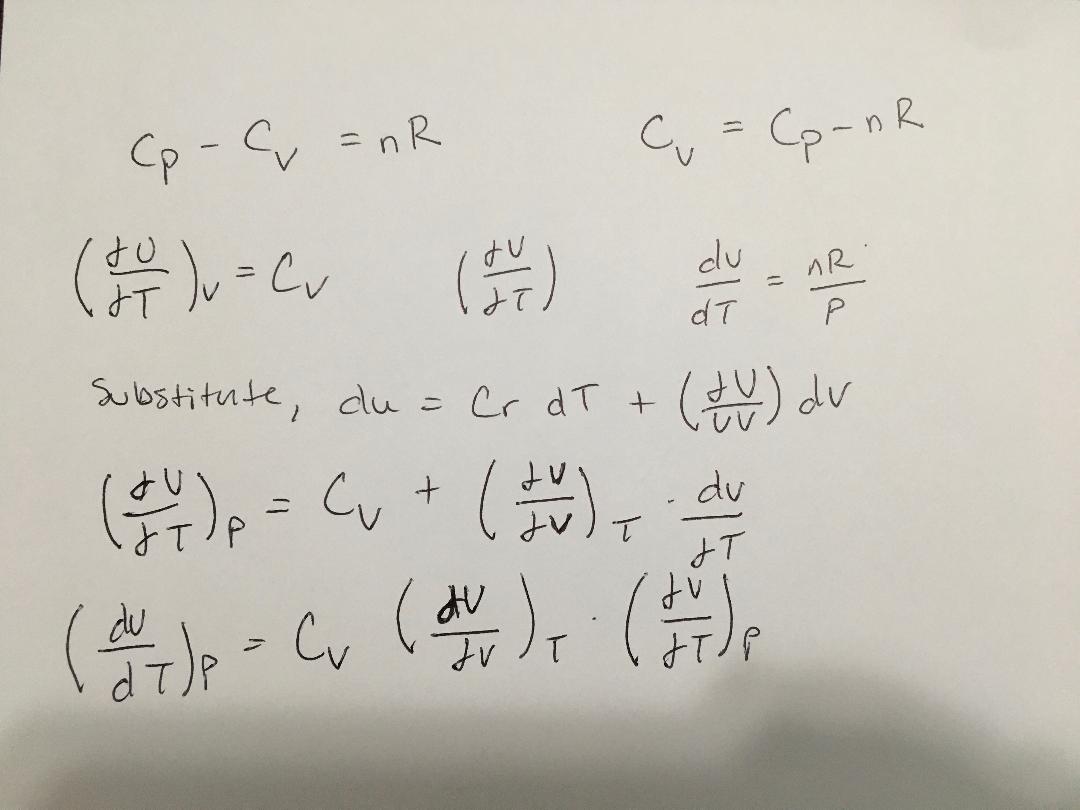 Cp - Cv = nR Cv = Cp - nR
(∂U/∂T)v = Cv (∂V/∂T) dv/dT = nR/P
Substitute, du = Cr dT + (∂U/UV) dv
(∂U/∂T)P = Cv + (∂V/∂V)T · dv/∂T
(du/dT)P = Cv (∂U/∂V)T · (∂V/∂T)P